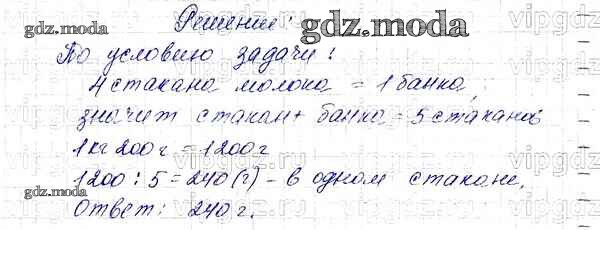 Решение:
По условию задачи:
4 стакана молока = 1 банка,
значит стакан + банка = 5 стаканов
1 кг 200 г = 1200 г
1200 : 5 = 240 (г) - в одном стакане.
Ответ: 240 г.
gdz.moda
gdz.moda
gdz.moda
gdz.moda
vipgdz